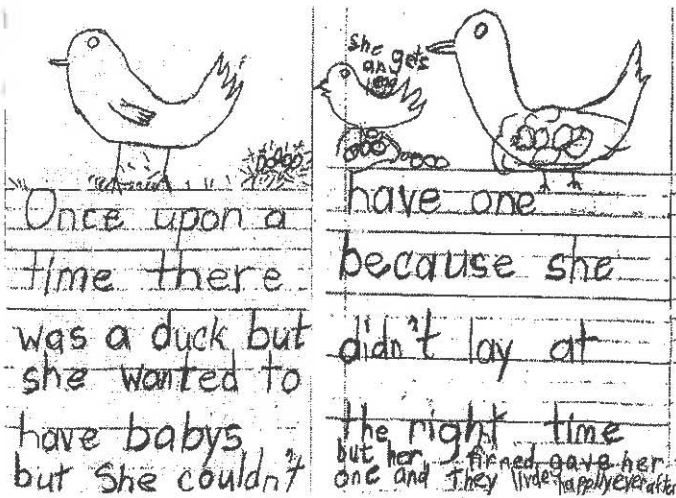 Once upon a
time there
was a duck but
she wanted to
have babys
but she couldn't
she gets
an egg
have one
because she
didn't lay at
the right time
but her firned gave her
one and they livde happllyeverafter